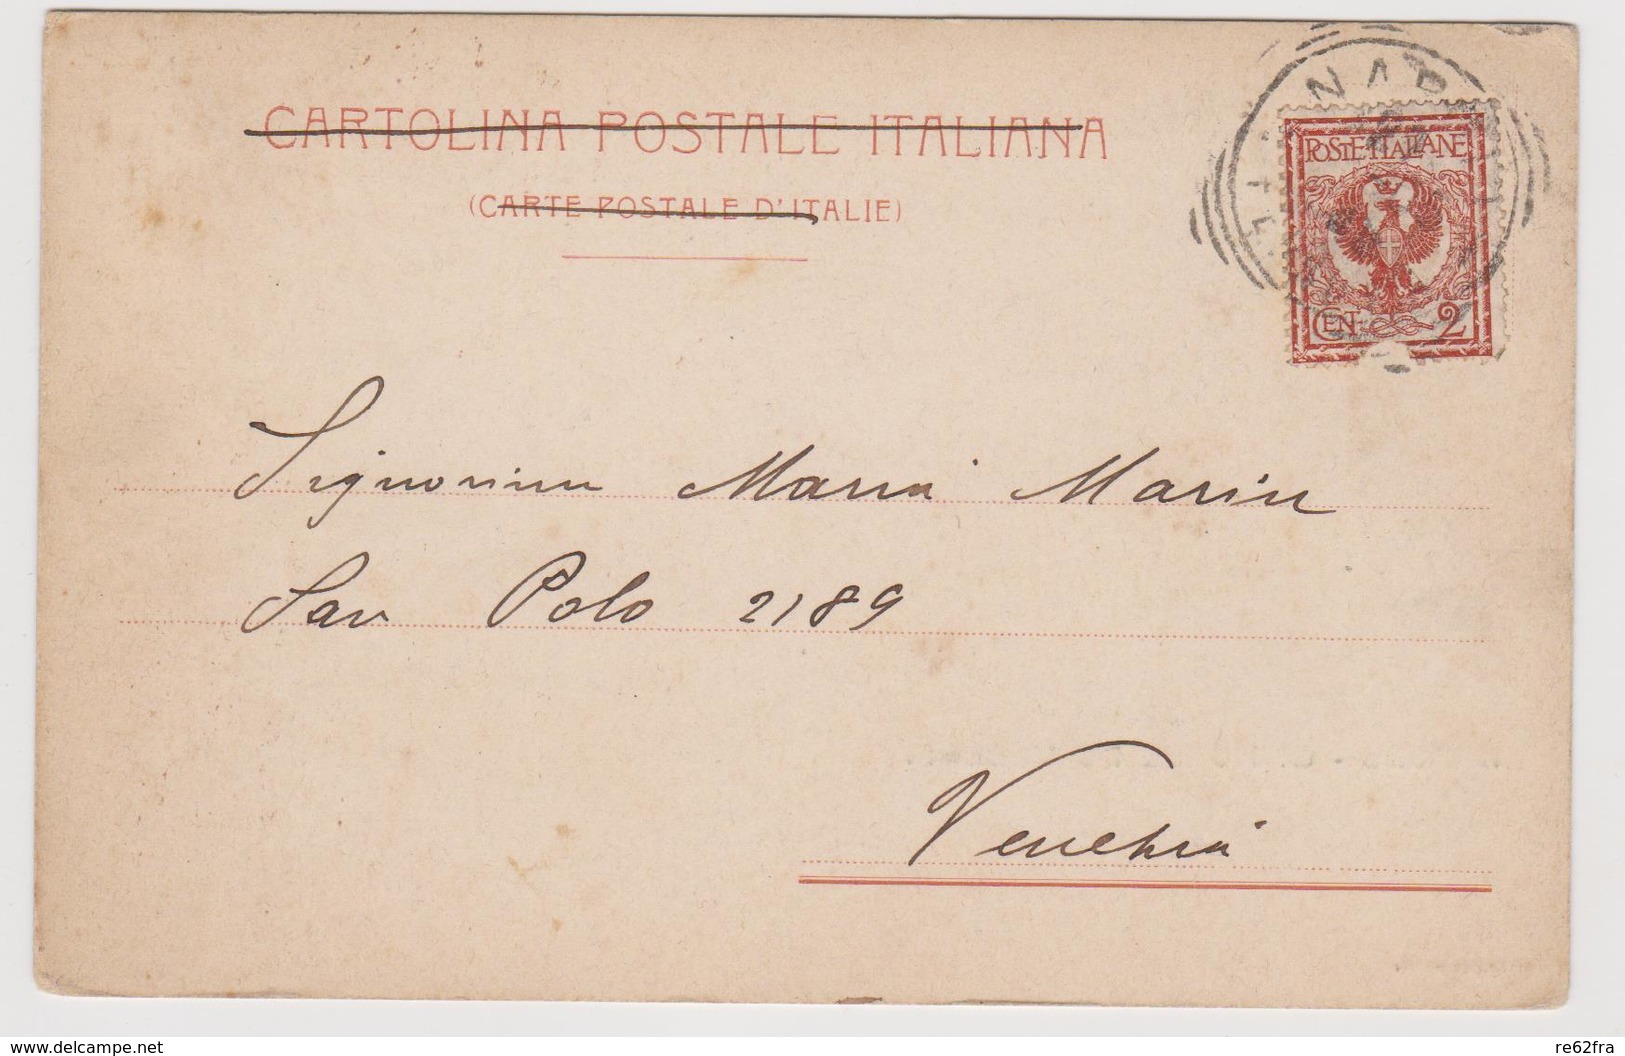 CARTOLINA POSTALE ITALIANA
(CARTE POSTALE D'ITALIE)
NAPOLI
POSTE ITALIANE
CEN. 2
Signorina Maria Marin
San Polo 2189
Venezia
www.delcampe.net
re62fra